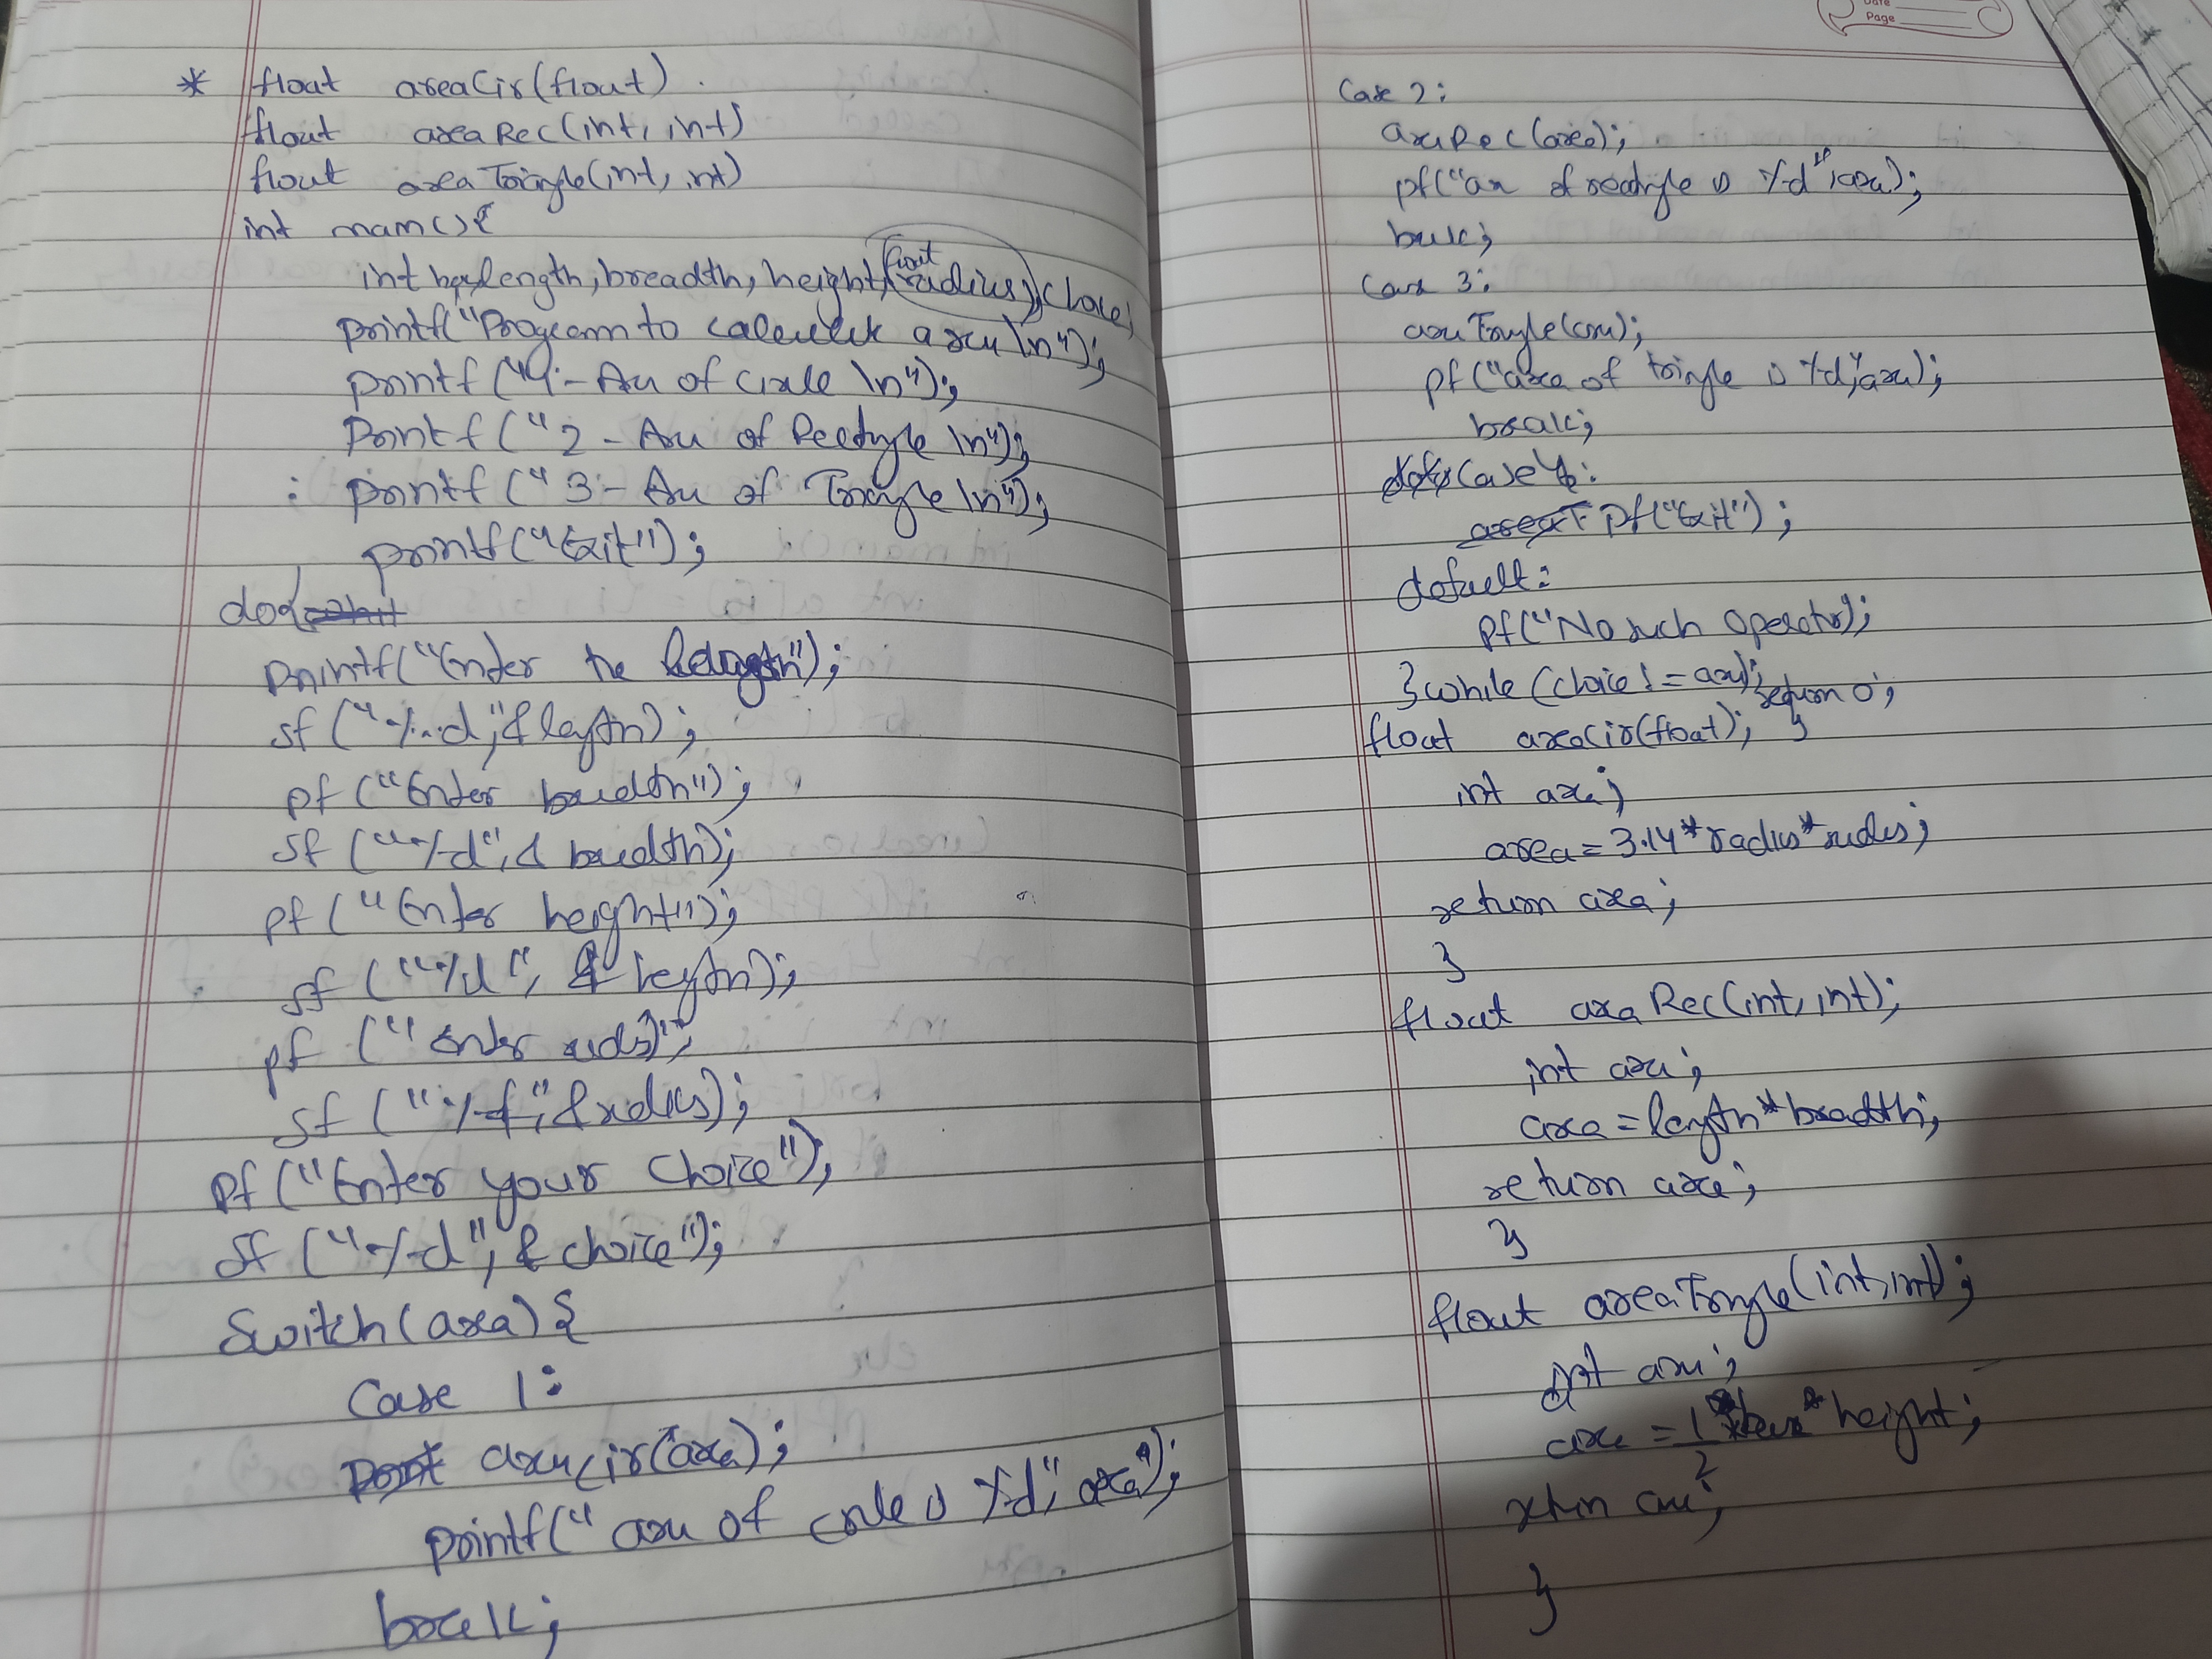 * float areaCir(float).
float areaRec(int, int)
float areaTriangle(int, int)
int main(){
float
int length, breadth, height, radius, choice;
printf("Program to calculate area \n");
printf("1 - Area of Circle \n");
printf("2 - Area of Rectangle \n");
: printf("3 - Area of Triangle \n");
printf("Exit");
do{
printf("Enter the length");
sf("%d", &length);
pf("Enter breadth");
sf("%d", & breadth);
pf("Enter height");
sf("%d", & length);
pf("Enter radius");
sf("%f", &radius);
pf("Enter your choice");
sf("%d", & choice");
Switch(area){
Case 1:
areaCir(area);
printf("area of circle is %d", area");
break;
Date
Page
Case 2:
areaRec(area);
pf("area of rectangle is %d", area);
break;
Case 3:
areaTriangle(area);
pf("area of triangle is %d", area);
break;
Case 4:
pf("Exit");
default:
pf("No such operator);
}while(choice != area);
return 0;
}
float areaCir(float);
int area;
area = 3.14*radius*radius;
return area;
}
float areaRec(int, int);
int area;
area = length*breadth;
return area;
}
float areaTriangle(int, int);
int area;
area = 1/2 * base * height;
return area;
}